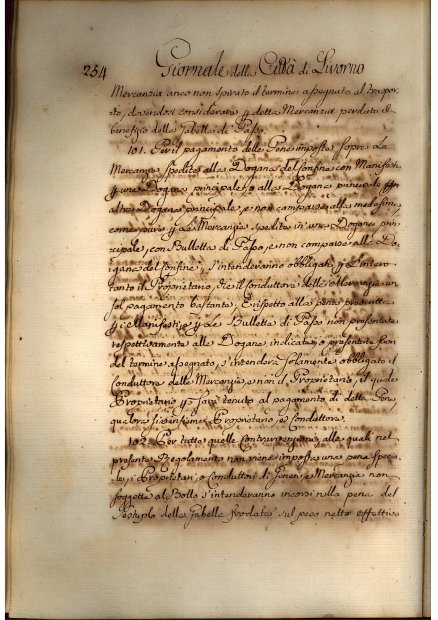 254 Giornale della Città di Livorno
Mercanzia anco non spirato il termine assegnato al trasporto,
dovendosi considerare detta Mercanzia perduta
benefizio della Gabella di Passo.
101. Per il pagamento delle Pene imposte sopra La
Mercanzia spedita alla Dogana del Confine con Manifesto
una Dogana principale, o alla Dogana principale
altra Dogana principale, e non comparsa alla medesima
come pure La Mercanzia spedita in una Dogana principale,
con Bulletta di Passo, e non comparsa alla Dogana
del Confine, s'intenderanno obbligati l'intero
tanto il Proprietario, che il Conduttore della Mercanzia
sol pagamento bastante. E rispetto alle pene
i Manifesti, e Le Bullette di Passo non presentate
respettivamente alle Dogane indicate, o presentate fuori
del termine assegnato, s'intenderà solamente obbligato il
Conduttore della Mercanzia, e non il Proprietario, il quale
Proprietario sarà tenuto al pagamento di dette Pene
qualora sia insieme Proprietario, e Conduttore.
102. Per tutte quelle Contravvenzioni, alle quali nel
presente Regolamento non viene imposta una pena speciale,
i Proprietari, o Conduttori di Generi, e Mercanzie non
soggette al Bollo s'intenderanno incorsi nella pena del
della Gabella frodata sul peso netto effettivo